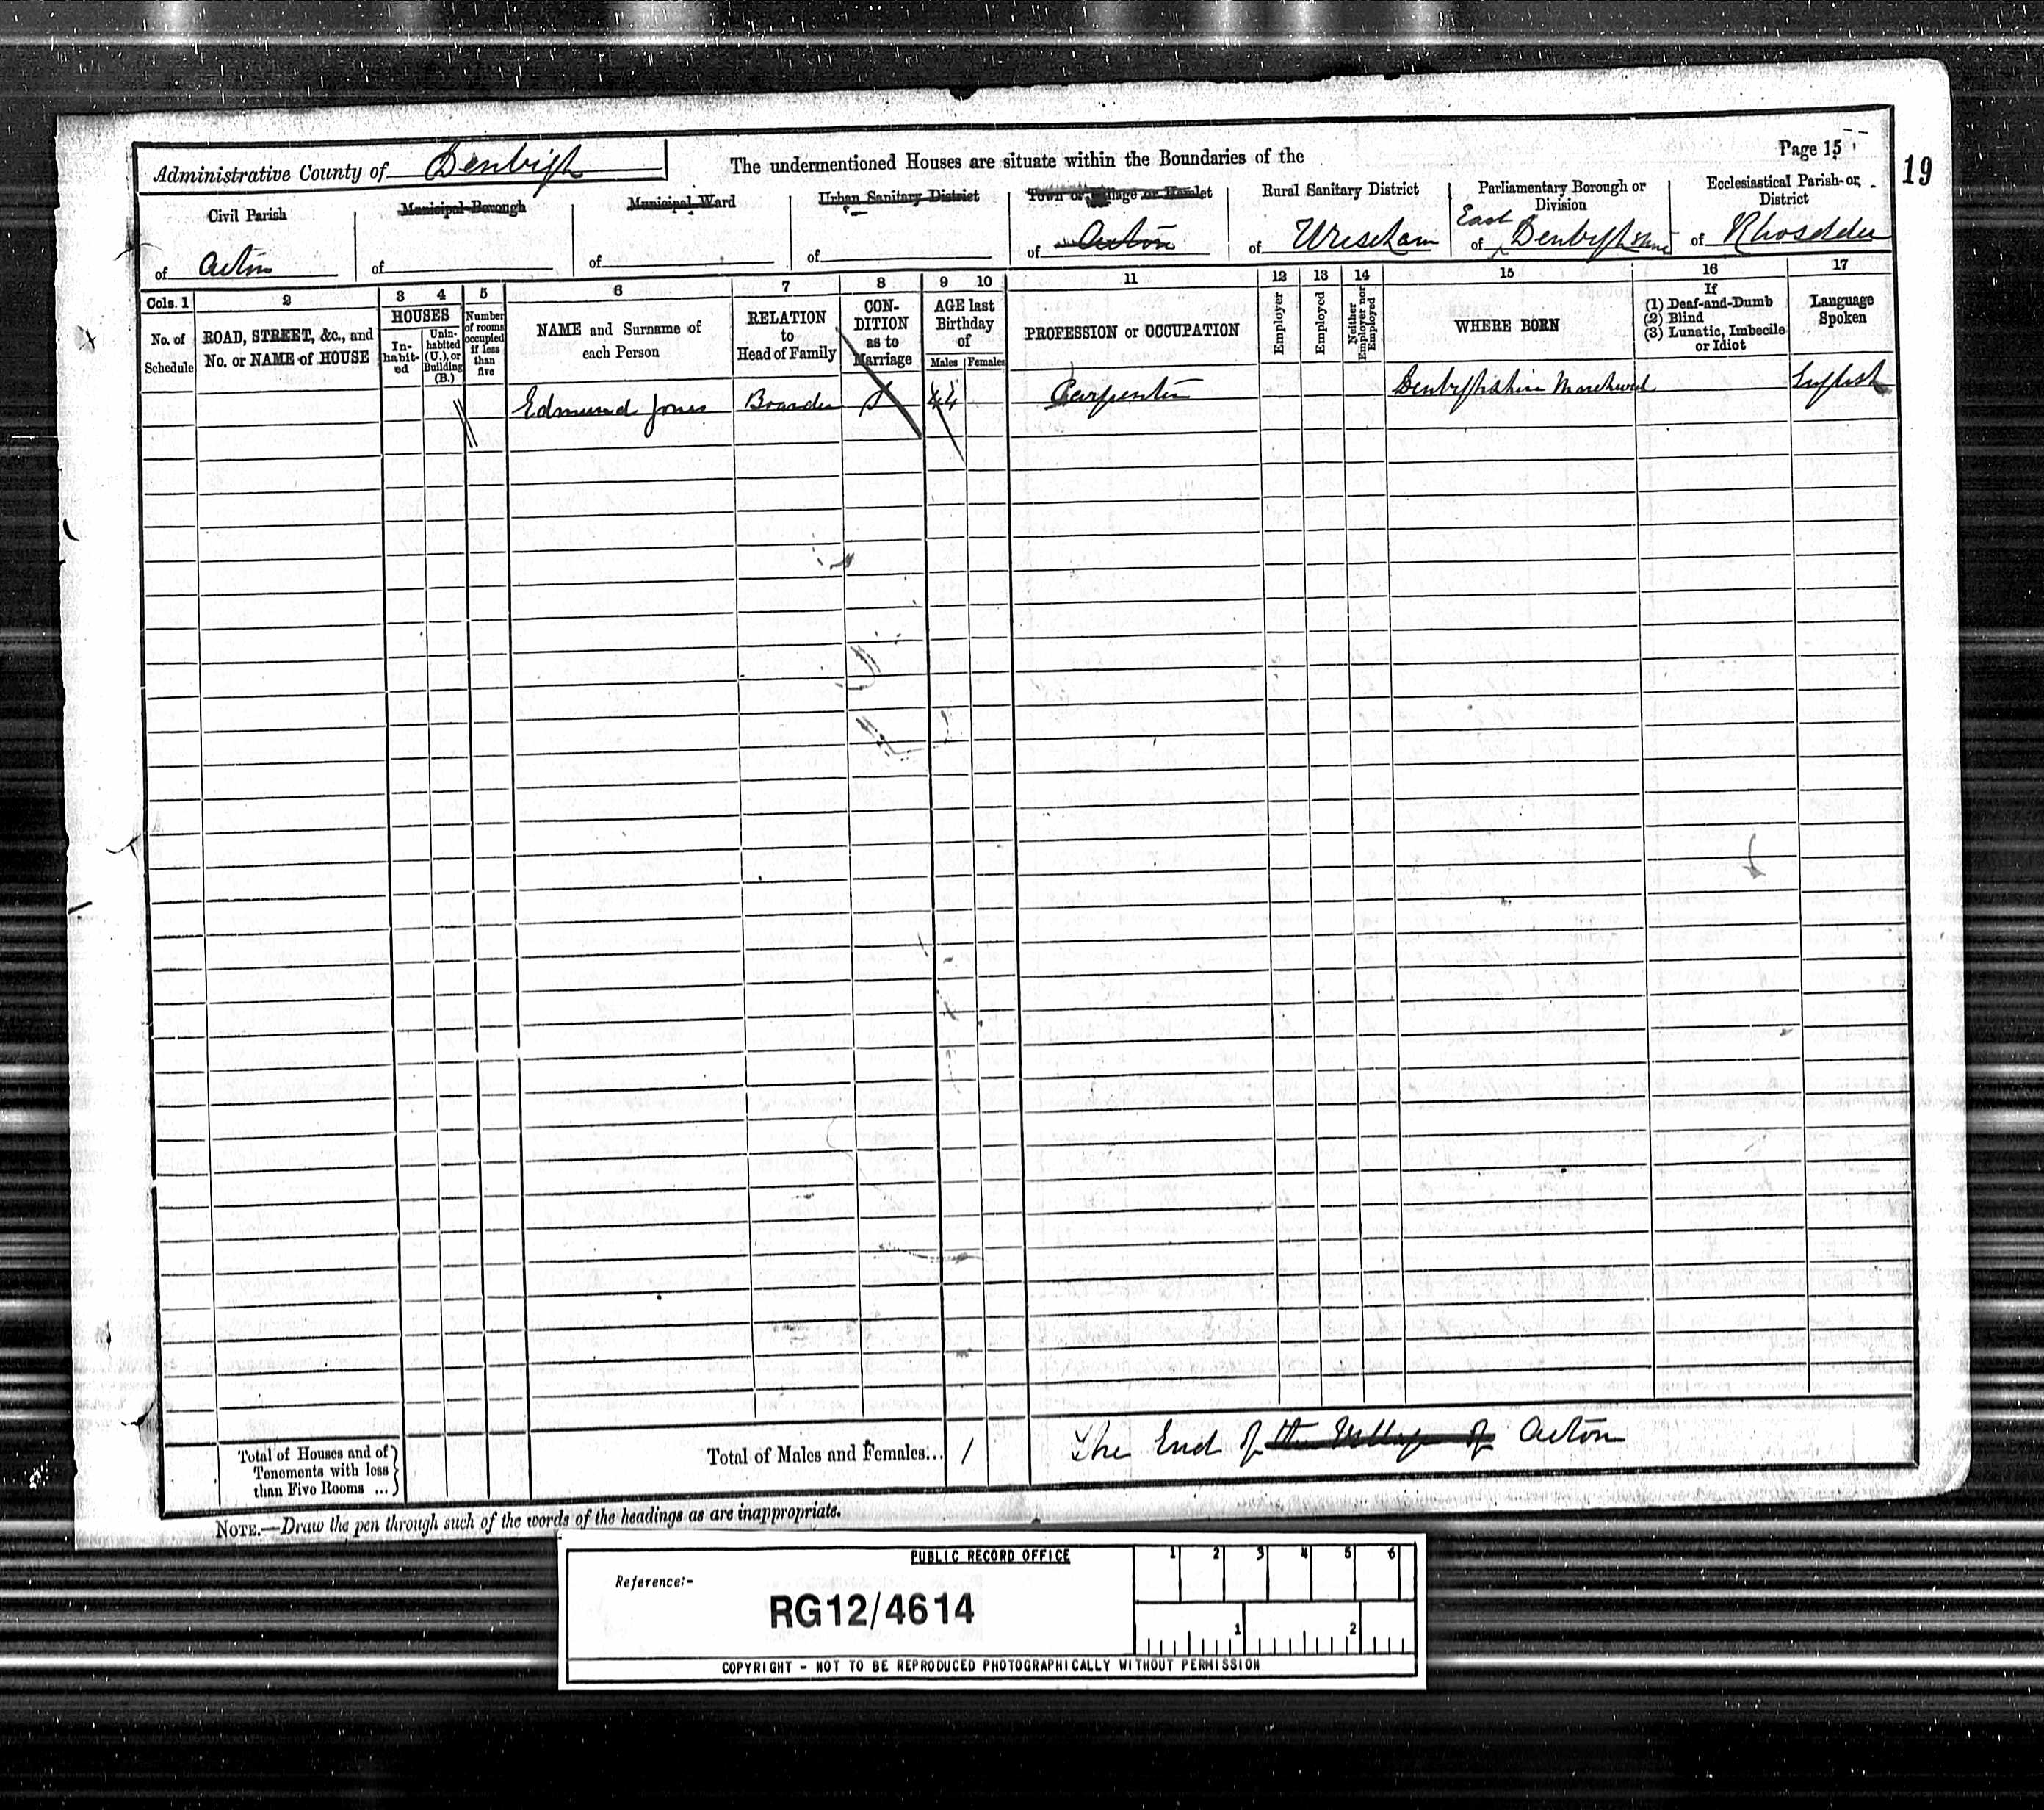 Page 15
19
Administrative County of Denbigh
The undermentioned Houses are situate within the Boundaries of the
Civil Parish
of Acton
Municipal Borough
of
Municipal Ward
of
Urban Sanitary District
of
Town or Village or Hamlet
of Acton
Rural Sanitary District
of Wrexham
Parliamentary Borough or
Division
East
of Denbighshire
Ecclesiastical Parish or
District
of Rhosddu
Cols. 1
No. of
Schedule
2
ROAD, STREET, &c., and
No. or NAME of HOUSE
3 4
HOUSES
In-
habit-
ed
Unin-
habited
(U.), or
Building
(B.)
5
Number
of rooms
occupied
if less
than
five
6
NAME and Surname of
each Person
7
RELATION
to
Head of Family
8
CON-
DITION
as to
Marriage
9 10
AGE last
Birthday
of
Males Females
11
PROFESSION or OCCUPATION
12
Employer
13
Employed
14
Neither
Employer nor
Employed
15
WHERE BORN
16
If
(1) Deaf-and-Dumb
(2) Blind
(3) Lunatic, Imbecile
or Idiot
17
Language
Spoken
Edmund Jones Boarder S 44 Carpenter Denbighshire English
Total of Houses and of
Tenements with less
than Five Rooms ...
Total of Males and Females... 1
The End of the Village of Acton
NOTE.—Draw the pen through such of the words of the headings as are inappropriate.
PUBLIC RECORD OFFICE
Reference:-
RG12/4614
1 2 3 4 5 6
1 2
COPYRIGHT - NOT TO BE REPRODUCED PHOTOGRAPHICALLY WITHOUT PERMISSION